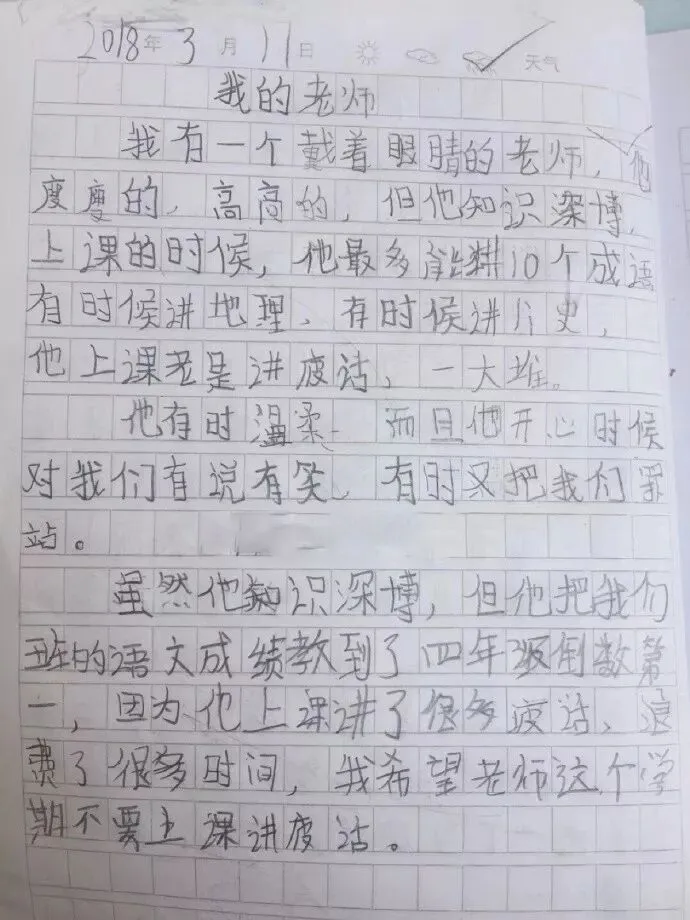 2018年3月11日 天气
我的老师
我有一个戴着眼睛的老师,他
废废的,高高的,但他知识深博,
上课的时候,他最多能讲10个成语
有时候讲地理、有时候进历史,
他上课老是进疲话,一大堆。
他有时温柔,而且他开心时候
对我们有说有笑,有时又把我们罪
站。
虽然他知识深博,但他把我们
班的语文成绩教到了四年级倒数第
一,因为他上课讲了很多疲话,浪
费了很多时间,我希望老师这个学
期不要上课进废话。